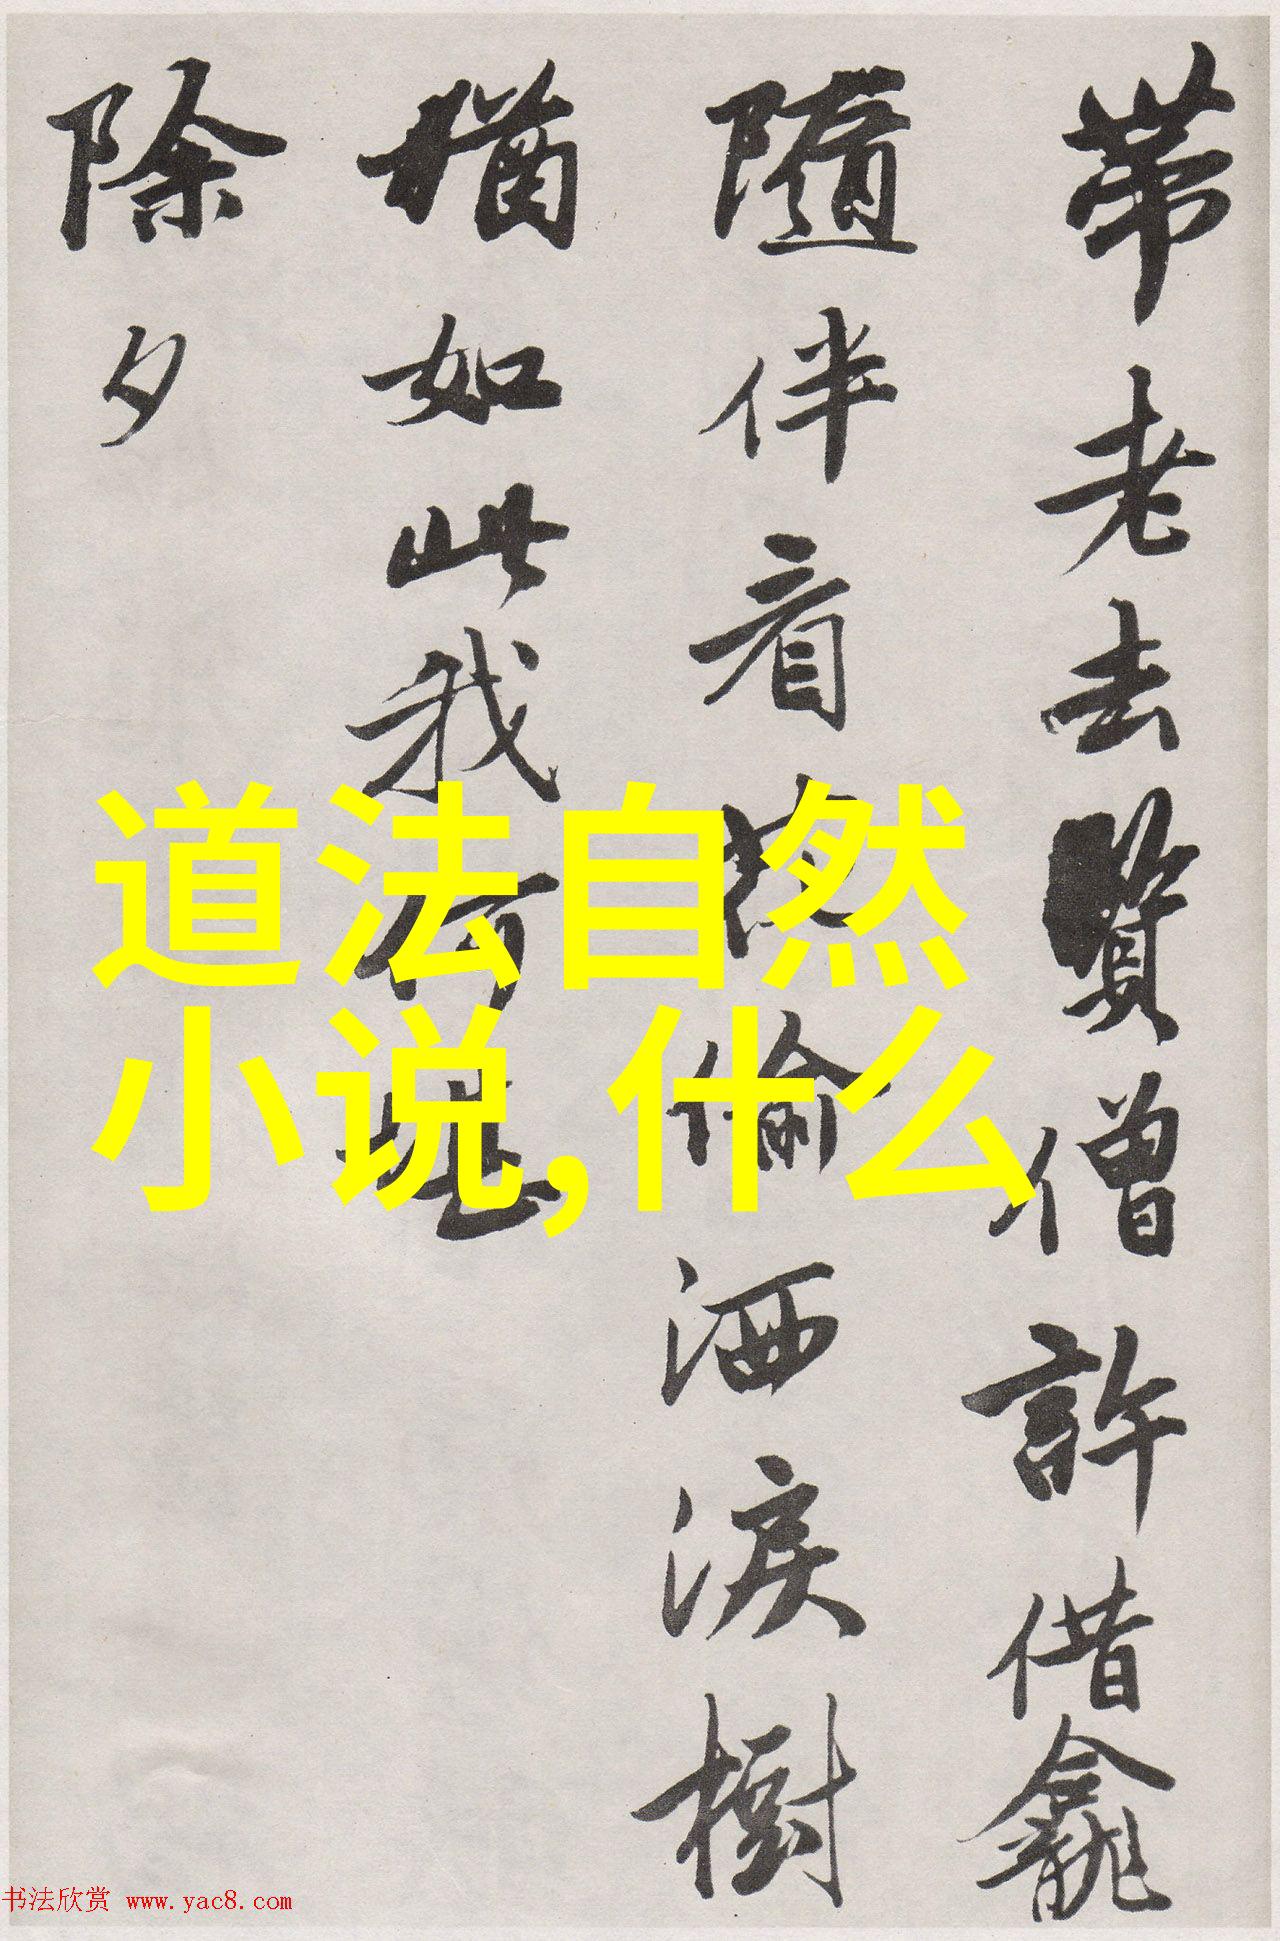 帶老去賢僧許借龕
隨伴看枝偷洒淚樹
猶如此我何堪
除夕
道法自然
小说,什么
书法欣赏 www.yac8.com